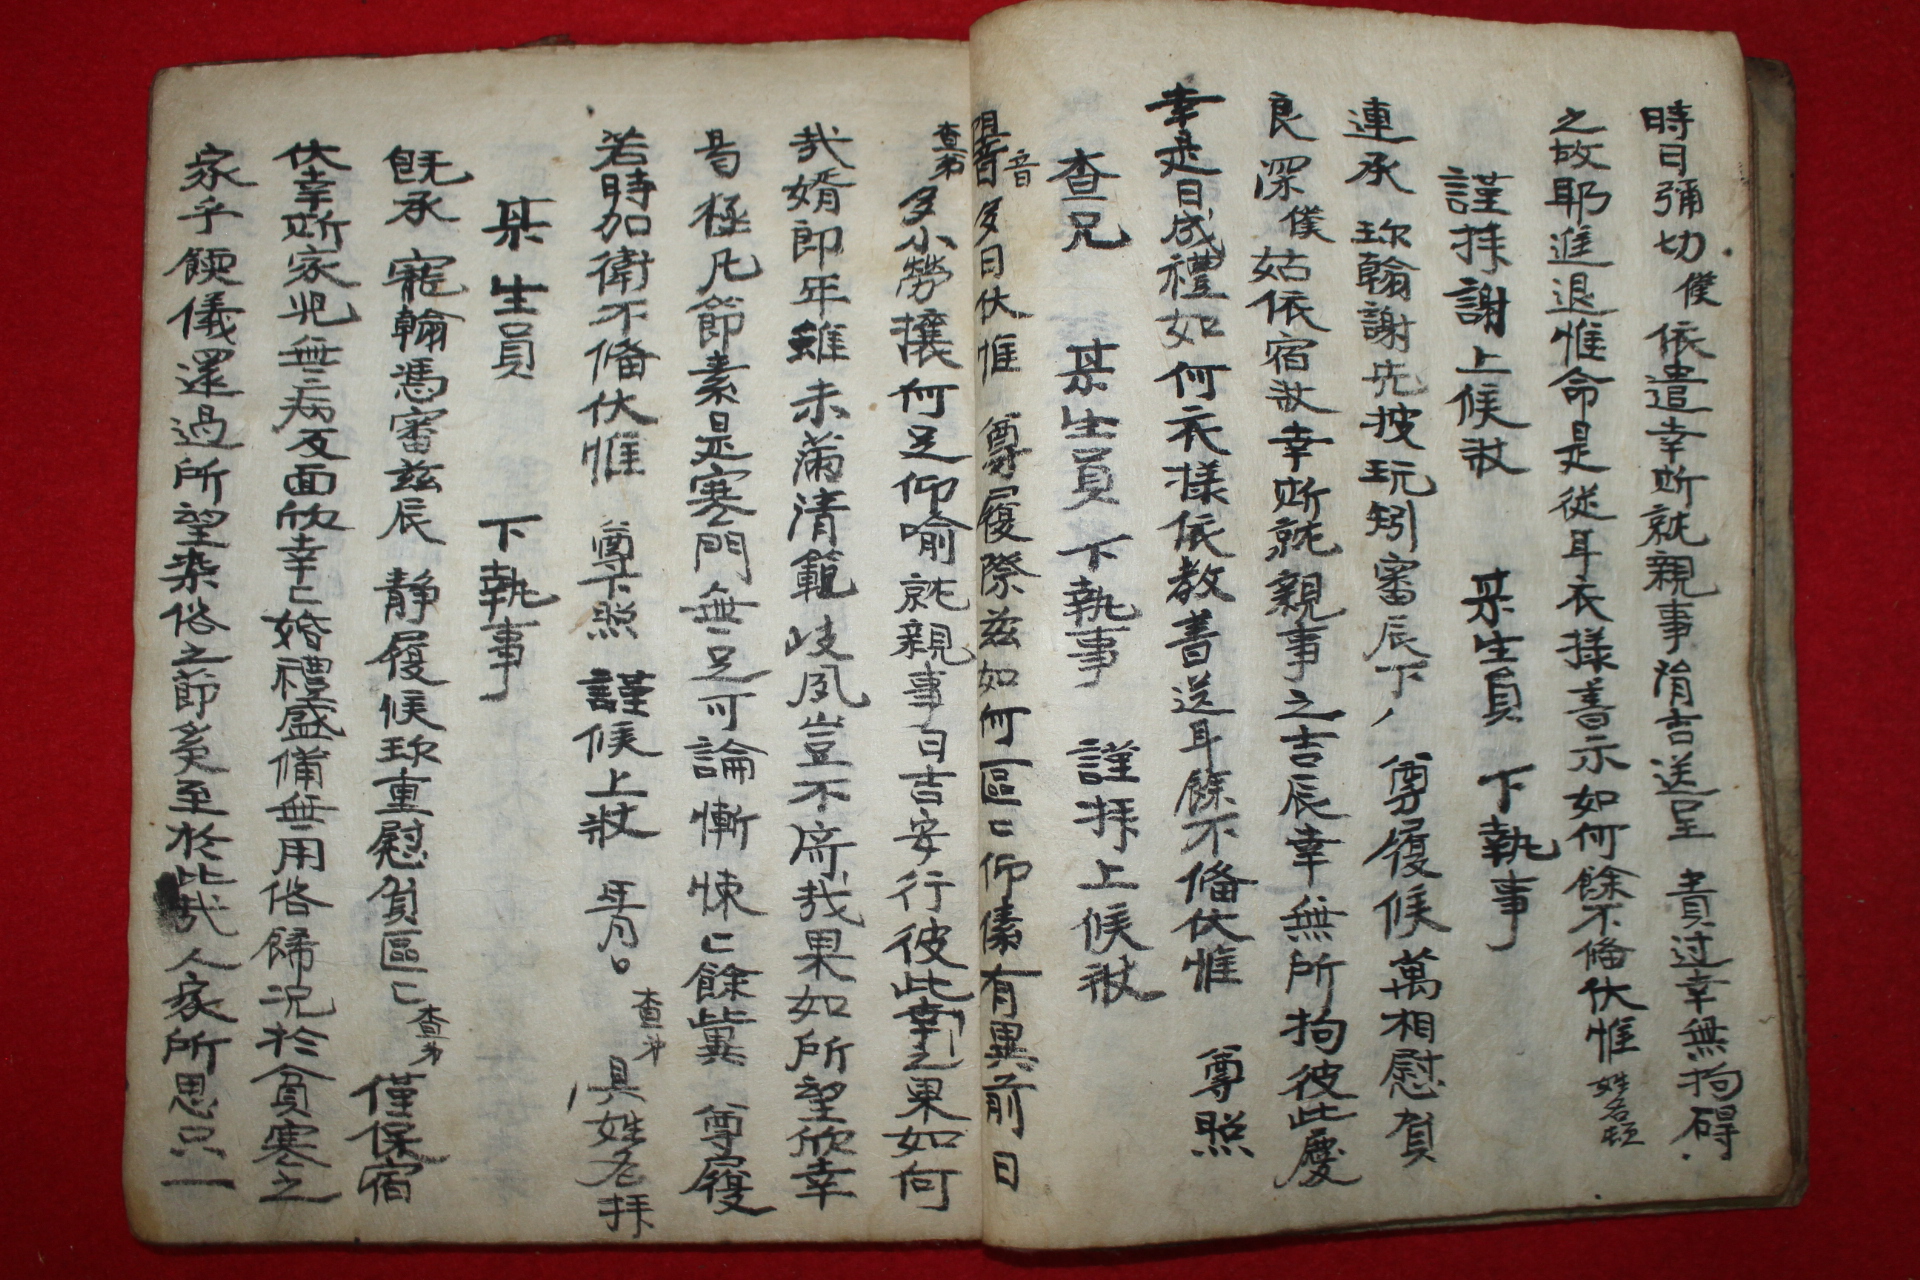 時日彌切 僕依遣幸斯就親事涓吉送呈 貴过幸無拘碍
之故耶進退惟命是從耳衣樣善示如何餘不俻伏惟 姓名頓
謹拜謝上候狀 某生員 下執事
連承 珎翰謝先披玩矧審辰下 尊履候萬相慰賀
良深 僕姑依宿狀幸斯就親事之吉辰幸無所拘彼此慶
幸是日成禮如何衣樣依教書送耳餘不俻伏惟 尊照
查兄 某生員 下執事 謹拜上候狀
阻音多日伏惟 尊履際玆如何區〻仰傃有異前日
查弟 多小勞攘何足仰喩就親事日吉安行彼此幸之果如何
哉婿郎年雖未滿清範岐夙豈不席哉果如所望欣幸
曷極凡節素是寒門無足可論慚悚〻餘兾 尊履
若時加衛不俻伏惟 尊下照 謹候上狀 年月日 查弟 具姓名拜
某生員 下執事
旣承 寵翰憑審玆辰 静履候珎重慰賀區〻 查弟 僅保宿
伏幸斯家児無病反面欣幸〻婚禮盛備無用俗歸况於貧寒之
家乎餪儀還過所望染俗之節奚至於此哉人家所思只一